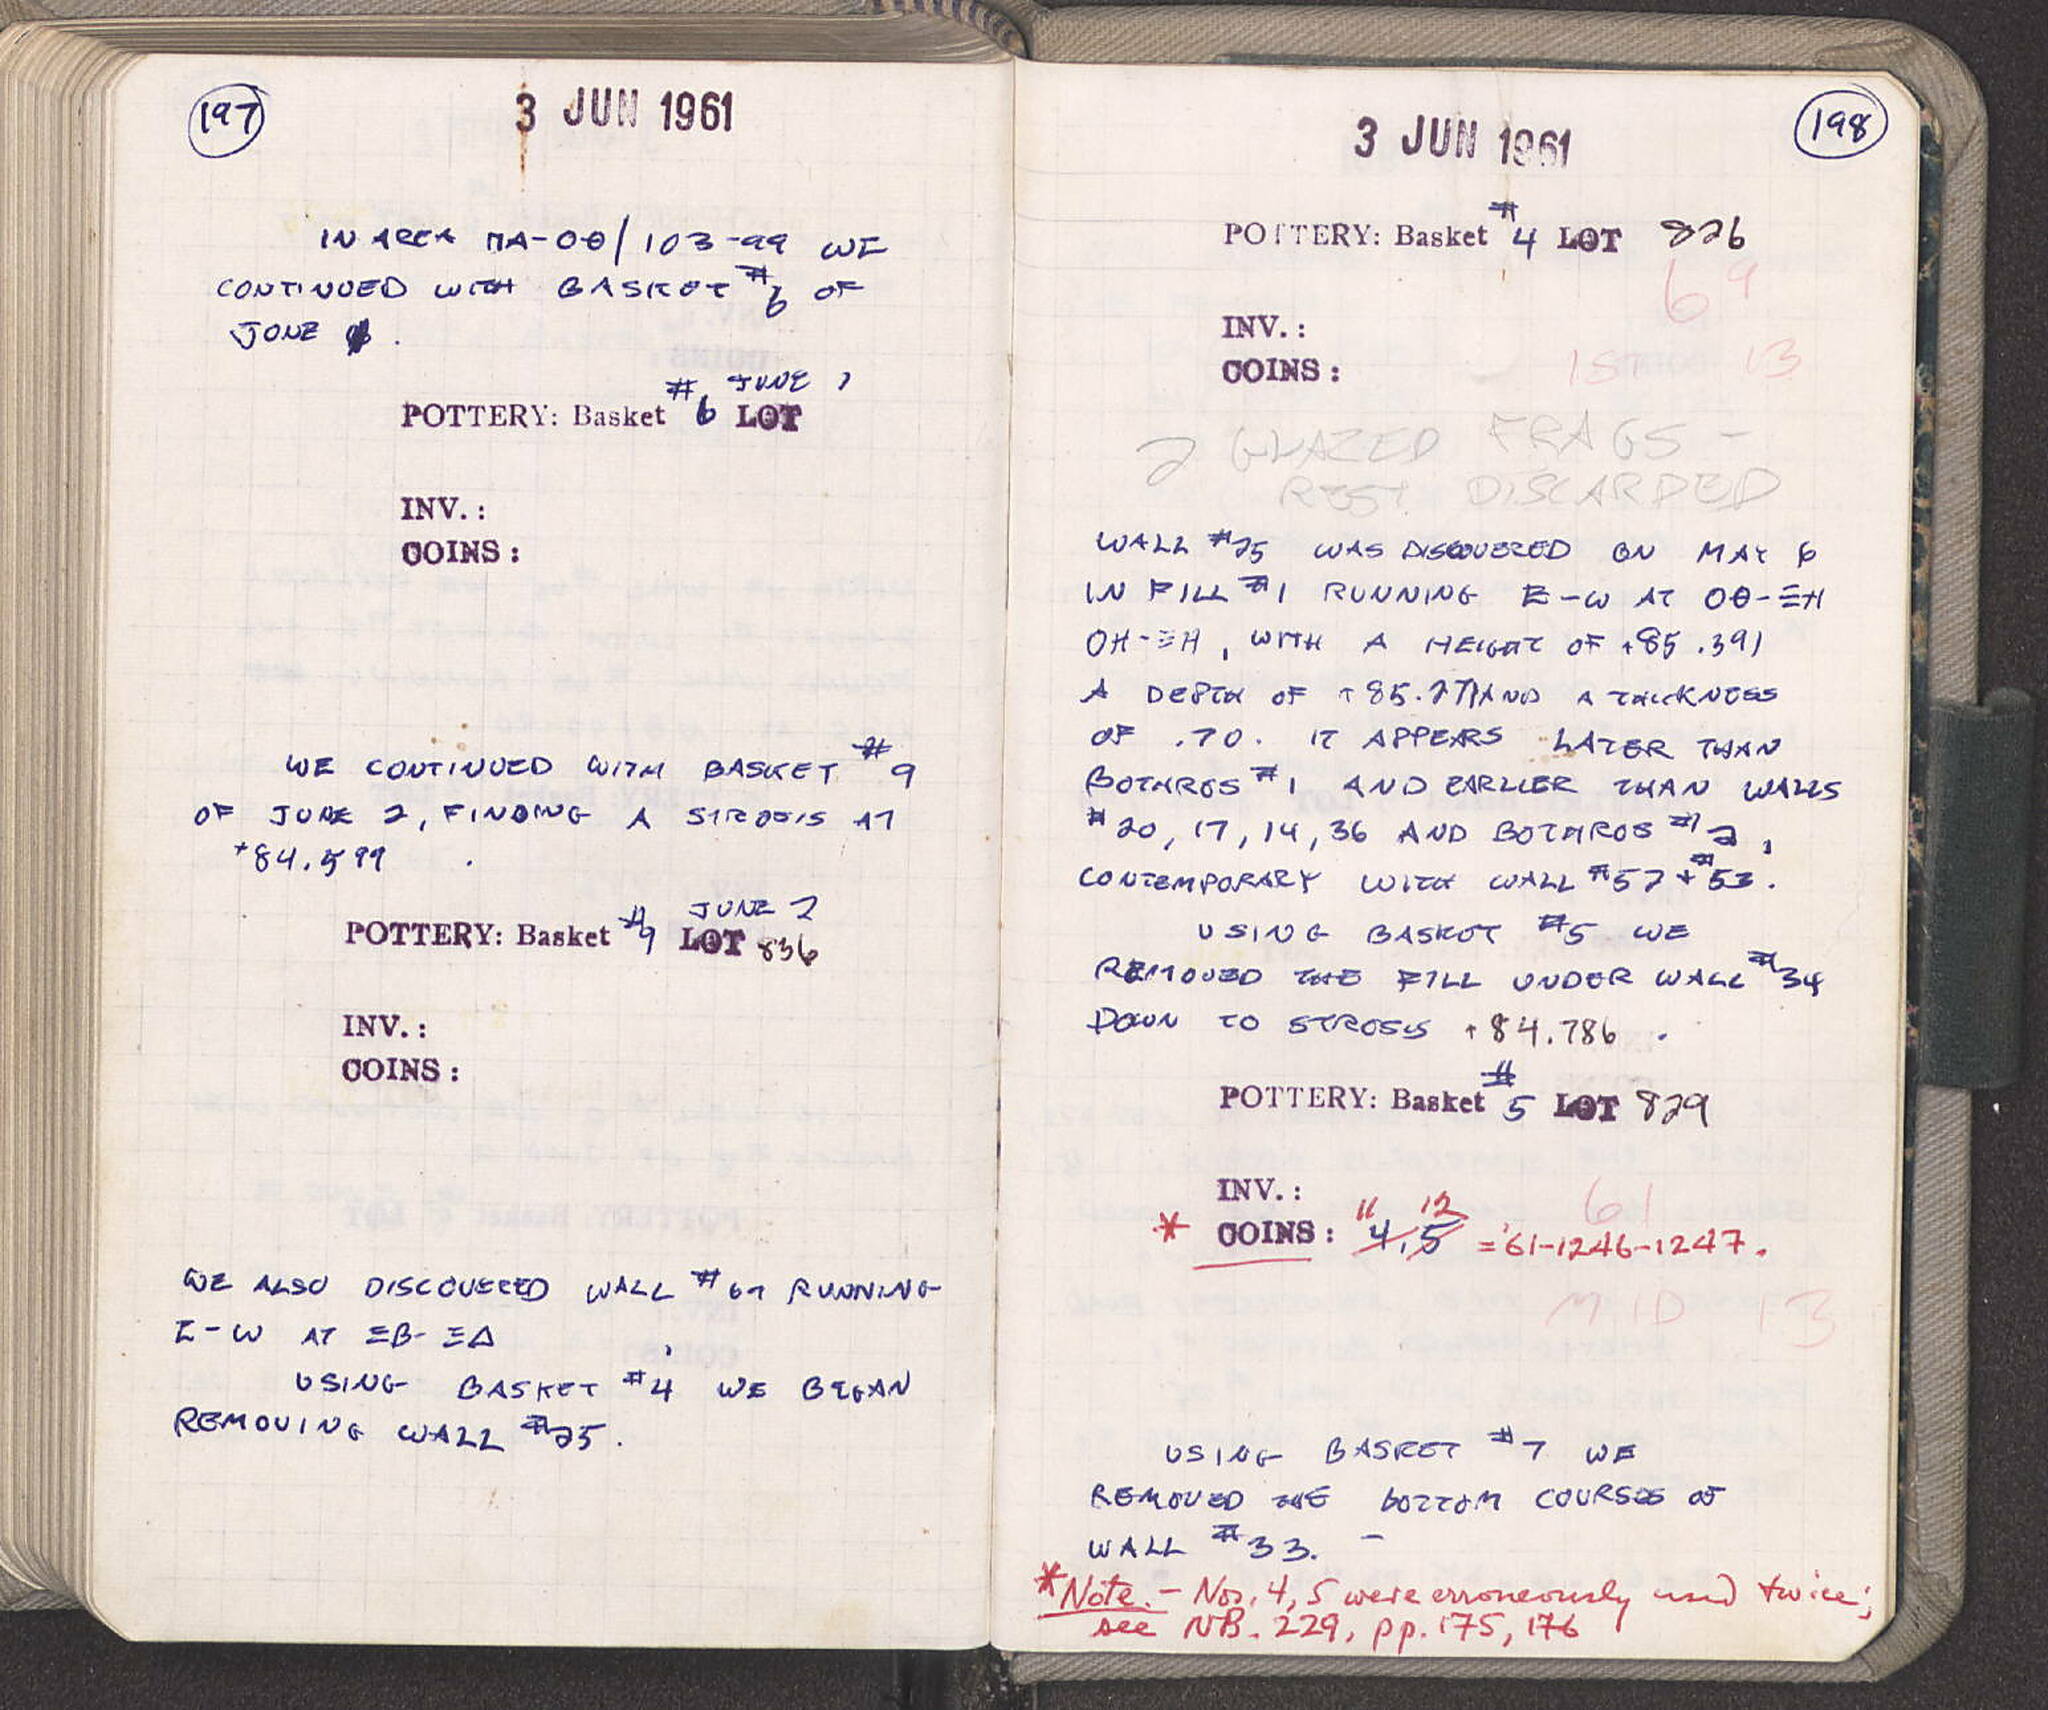 197
3 JUN 1961
IN AREA MA-OΘ/103-99 WE
CONTINUED WITH BASKET #6 OF
JUNE .
JUNE 1
POTTERY: Basket #6 LOT
INV.:
COINS:
WE CONTINUED WITH BASKET #9
OF JUNE 2, FINDING A STROSIS AT
+84.599 .
JUNE 2
POTTERY: Basket #9 LOT 836
INV.:
COINS:
WE ALSO DISCOVERED WALL #67 RUNNING
E-W AT ΞB-ΞΔ
USING BASKET #4 WE BEGAN
REMOVING WALL #25.
198
3 JUN 1961
POTTERY: Basket #4 LOT 826
69
INV.:
COINS:
1ST 13
2 GLAZED FRAGS -
REST DISCARDED
WALL #25 WAS DISCOVERED ON MAY 6
IN FILL #1 RUNNING E-W AT OΘ-ΞH
OH-ΞH, WITH A HEIGHT OF +85.391
A DEPTH OF +85.271 AND A THICKNESS
OF .70. IT APPEARS LATER THAN
BOTHROS #1 AND EARLIER THAN WALLS
#20, 17, 14, 36 AND BOTHROS #2,
CONTEMPORARY WITH WALL #57 + #53.
USING BASKET #5 WE
REMOVED THE FILL UNDER WALL #34
DOWN TO STROSIS +84.786 .
POTTERY: Basket #5 LOT 829
INV.: 61
11 12
* COINS: 4,5 = '61-1246-1247.
MID 13
USING BASKET #7 WE
REMOVED THE BOTTOM COURSES OF
WALL #33. -
*Note.- Nos. 4, 5 were erroneously used twice;
see NB. 229, pp. 175, 176